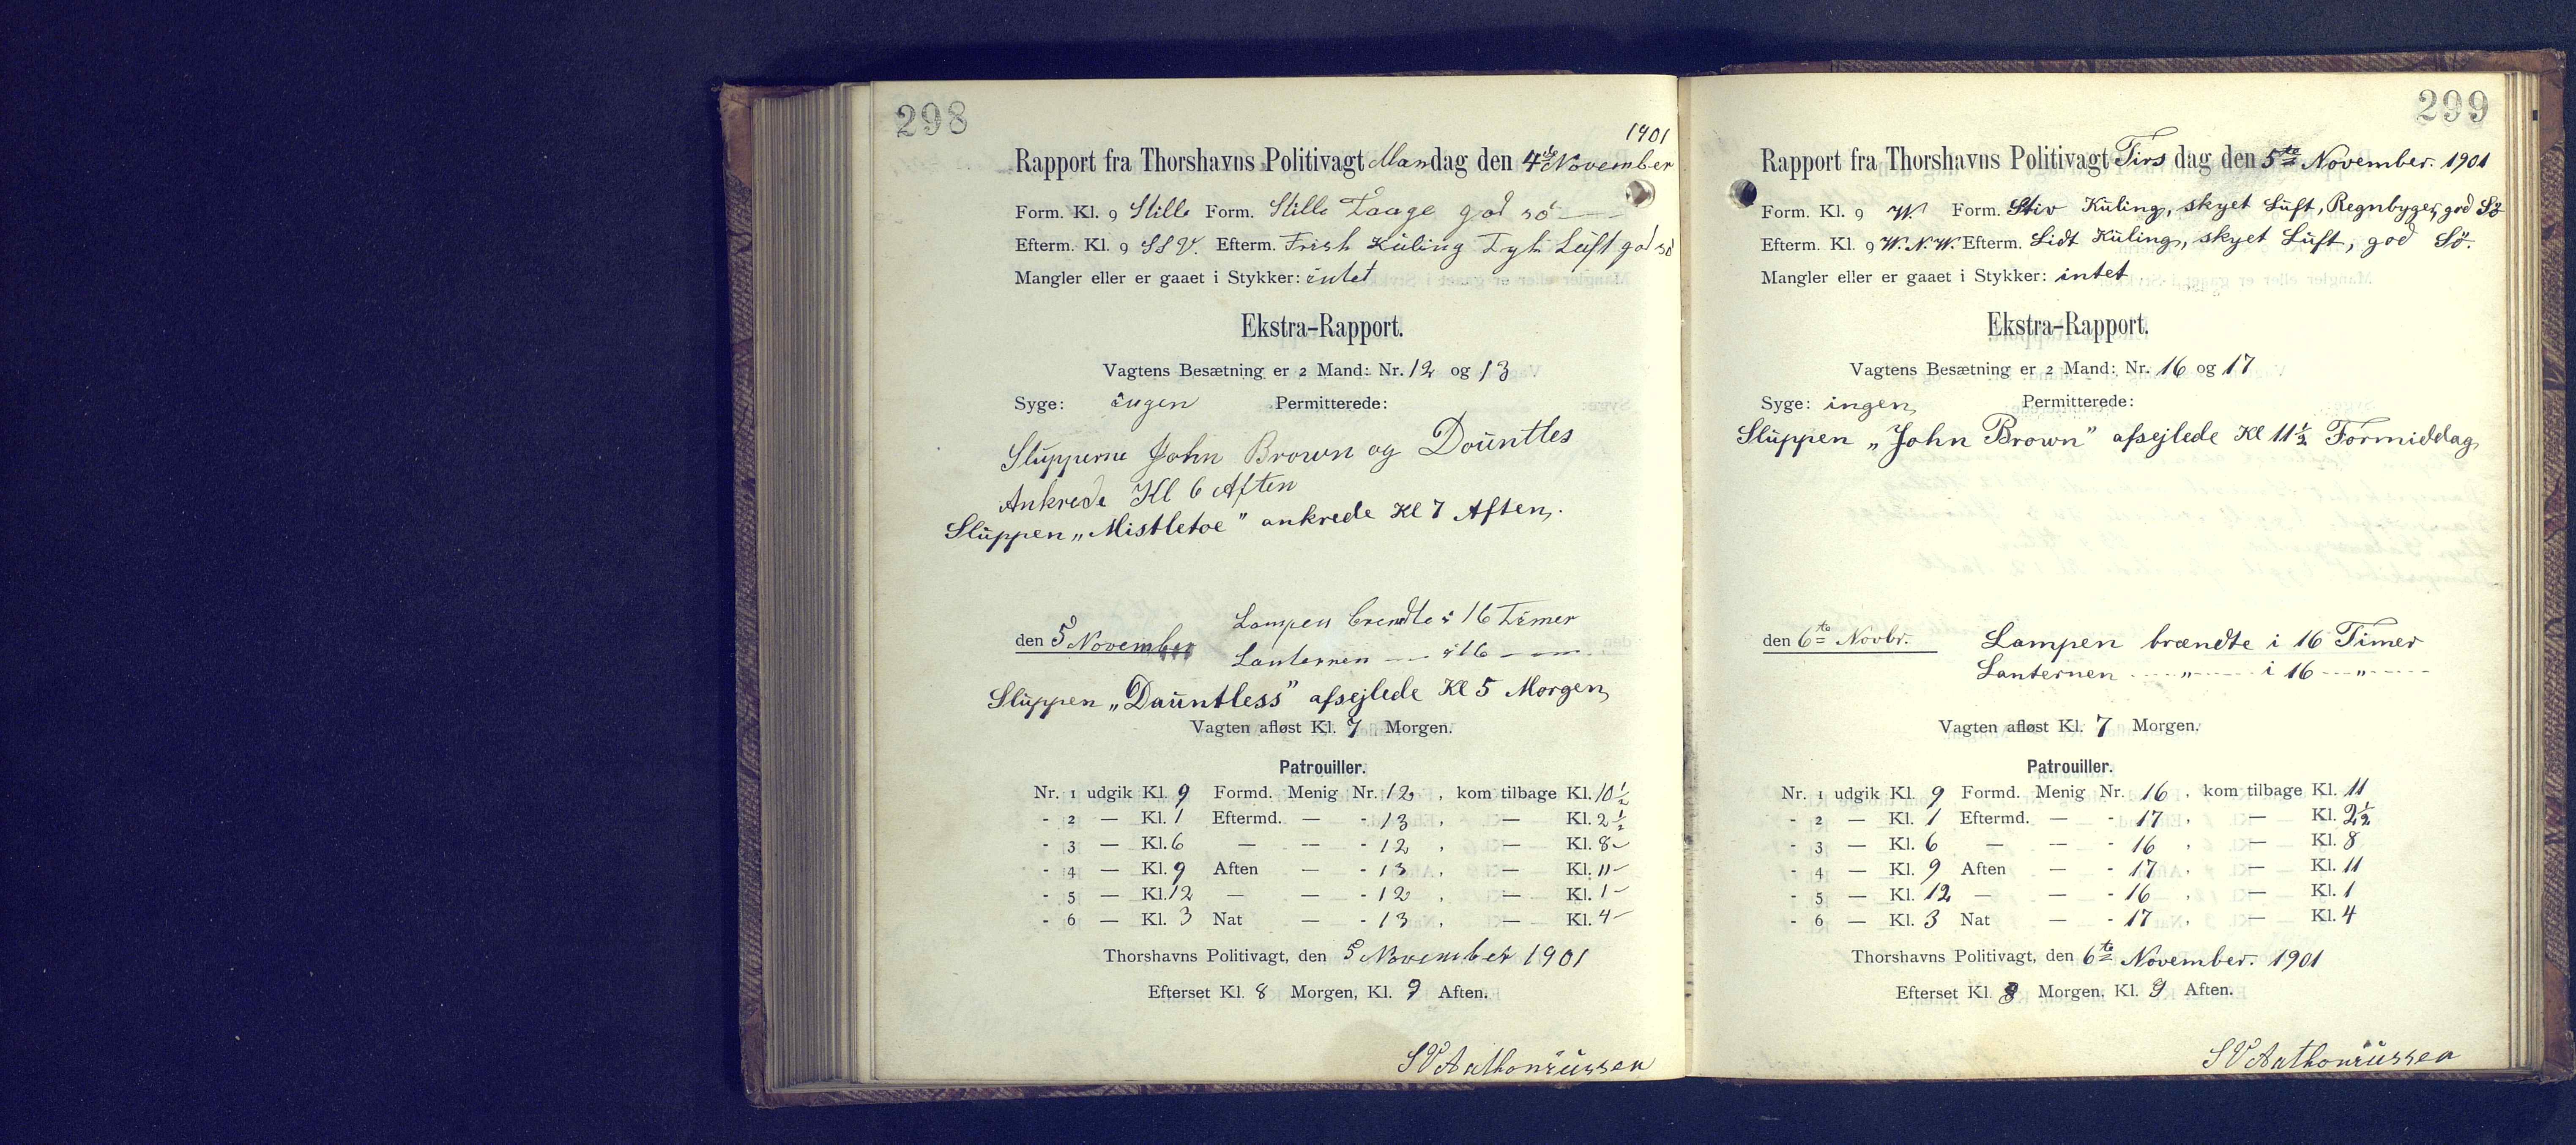 298
1901
Rapport fra Thorshavns Politivagt Mandag den 4de November
Form. Kl. 9 Stille Form. Stille Taage god sö
Efterm. Kl. 9 SSV. Efterm. Frisk Kuling Tyk Luft god sö
Mangler eller er gaaet i Stykker: intet
Ekstra-Rapport.
Vagtens Besætning er 2 Mand: Nr. 12 og 13
Syge: ingen Permitterede:
Slupperne John Brown og Dountles
Ankrede Kl 6 Aften
Sluppen „Mistletoe" ankrede Kl 7 Aften.
den 5 November Lampen brendte i 16 Timer
Lanternen — i 16 — —
Sluppen „Dauntless" afsejlede Kl 5 Morgen,
Vagten afløst Kl. 7 Morgen.
Patrouiller.
Nr. 1 udgik Kl. 9 Formd. Menig Nr. 12, kom tilbage Kl. 10 1/2
- 2 — Kl. 1 Eftermd. — - 13, — Kl. 2 1/2
- 3 — Kl. 6 — — - 12, — Kl. 8 -
- 4 — Kl. 9 Aften — - 13, — Kl. 11 -
- 5 — Kl. 12 — — - 12, — Kl. 1 -
- 6 — Kl. 3 Nat — - 13, — Kl. 4 -
Thorshavns Politivagt, den 5 November 1901
Efterset Kl. 8 Morgen, Kl. 9 Aften.
SVAnthoniussen
299
Rapport fra Thorshavns Politivagt Tirsdag den 5te November. 1901
Form. Kl. 9 W. Form. Stiv Kuling, skyet Luft, Regnbyger, god Sö
Efterm. Kl. 9 W.N.W. Efterm. Lidt Kuling, skyet Luft, god Sö.
Mangler eller er gaaet i Stykker: intet.
Ekstra-Rapport.
Vagtens Besætning er 2 Mand: Nr. 16 og 17
Syge: ingen, Permitterede:
Sluppen „John Brown" afsejlede Kl 11 1/2 Formiddag,
den 6te Novbr. Lampen brændte i 16 Timer
Lanternen — „ — i 16 — „ —
Vagten afløst Kl. 7 Morgen.
Patrouiller.
Nr. 1 udgik Kl. 9 Formd. Menig Nr. 16, kom tilbage Kl. 11
- 2 — Kl. 1 Eftermd. — - 17, — Kl. 2 1/2
- 3 — Kl. 6 — — - 16, — Kl. 8
- 4 — Kl. 9 Aften — - 17, — Kl. 11
- 5 — Kl. 12 — — - 16, — Kl. 1
- 6 — Kl. 3 Nat — - 17, — Kl. 4
Thorshavns Politivagt, den 6te November. 1901
Efterset Kl. 8 Morgen, Kl. 9 Aften.
SVAnthoniussen